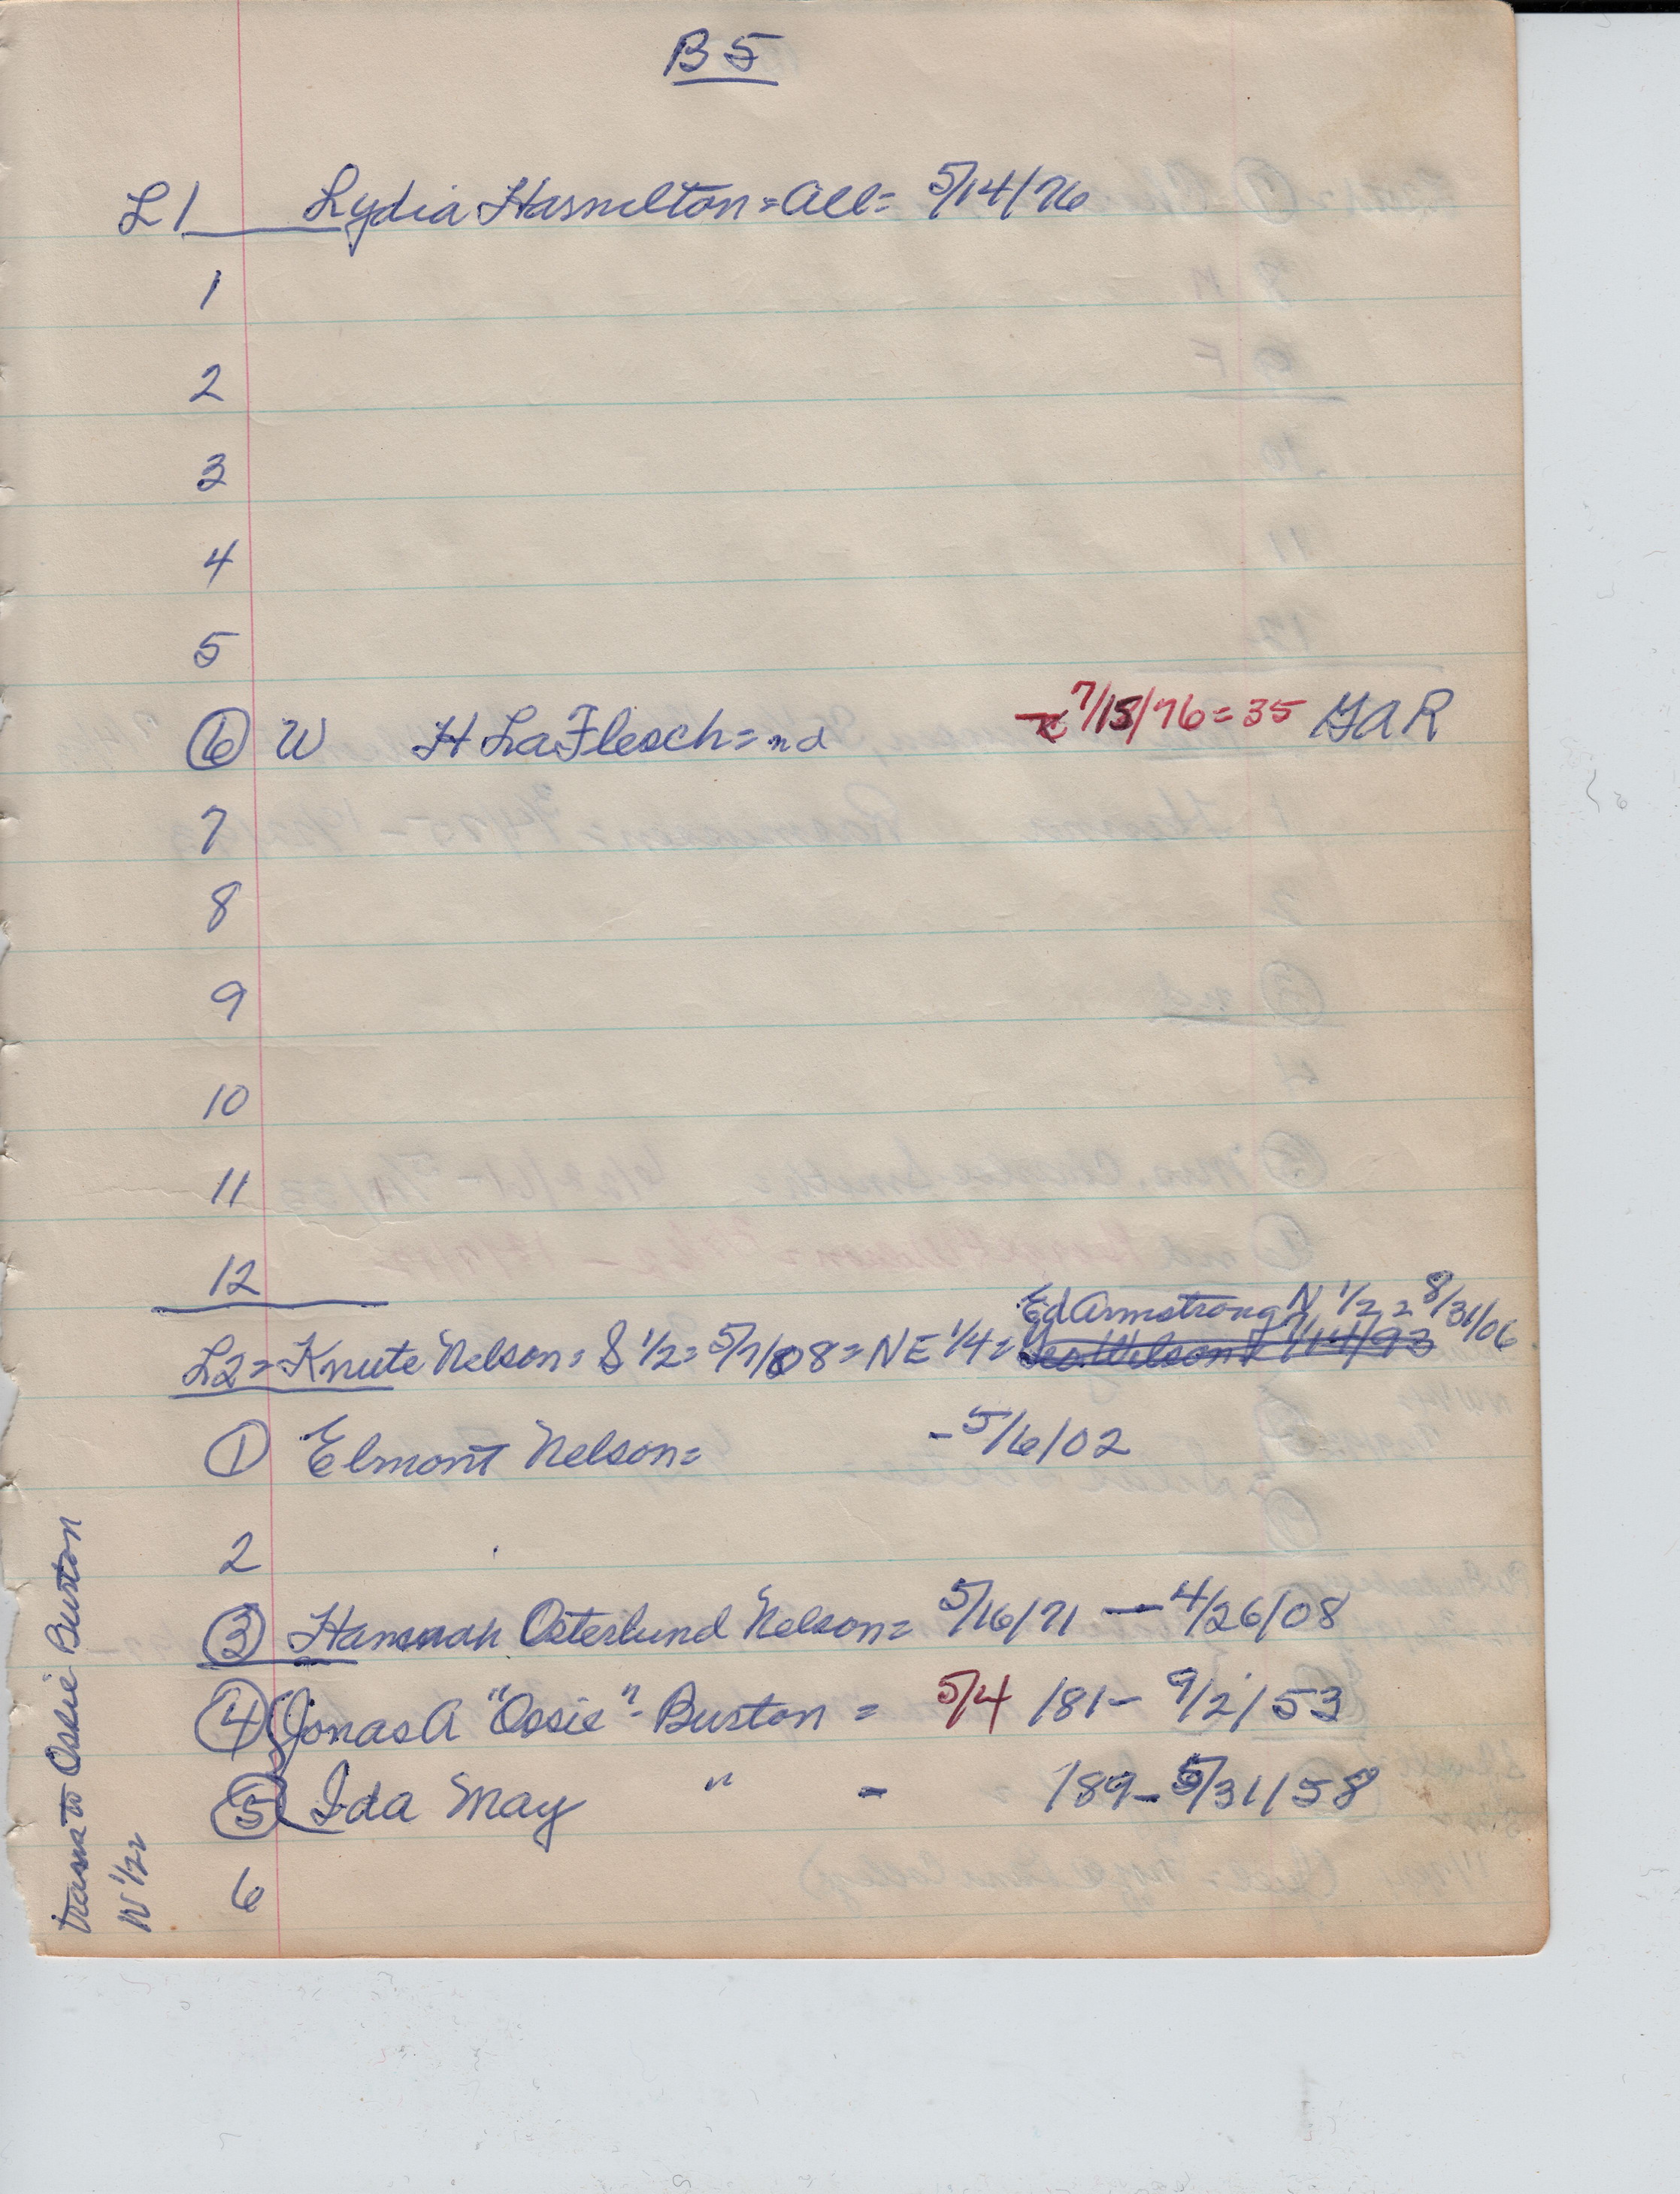 B 5
L 1 Lydia Hasmelton = All = 5/14/76
1
2
3
4
5
6 W H LaFlesch = nd 7/15/76 = 35 GAR
7
8
9
10
11
12
Ed Armstrong N 1/2 2 8/31/06
L2 = Knute Nelson = S 1/2 = 5/7/08 = NE 1/4 = Geo. Wilson 7/14/93
1 Elmont Nelson = - 5/6/02
2
3 Hannah Osterlund Nelson = 5/16/71 - 4/26/08
4 Jonas A "Ossie" - Burton = 5/4 181 - 9/2/53
5 Ida May " - 189 - 5/31/58
6
trans to Ossie Burton
W 1/2